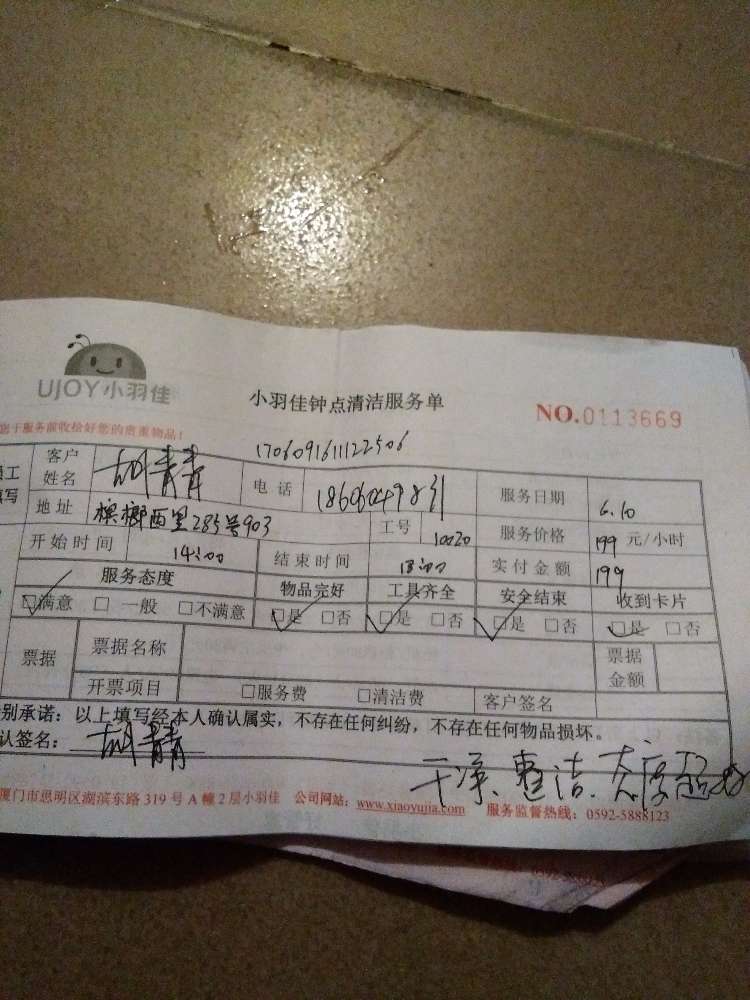 UJOY小羽佳
小羽佳钟点清洁服务单 NO.0113669
您于服务前收拾好您的贵重物品!
1706091611122506
客户姓名 胡青青 电话 服务日期 6.10
地址 槟榔西里285号903 工号 10020 服务价格 199 元/小时
开始时间 14:00 结束时间 实付金额 199
服务态度 物品完好 工具齐全 安全结束 收到卡片
□满意 □一般 □不满意 □是 □否 □是 □否 □是 □否 □是 □否
票据 票据名称 票据金额
开票项目 □服务费 □清洁费 客户签名
别承诺:以上填写经本人确认属实,不存在任何纠纷,不存在任何物品损坏。
认签名: 胡青青
干净、整洁、态度超好
厦门市思明区湖滨东路319号A幢2层小羽佳 公司网站:www.xiaoyujia.com 服务监督热线:0592-5888123